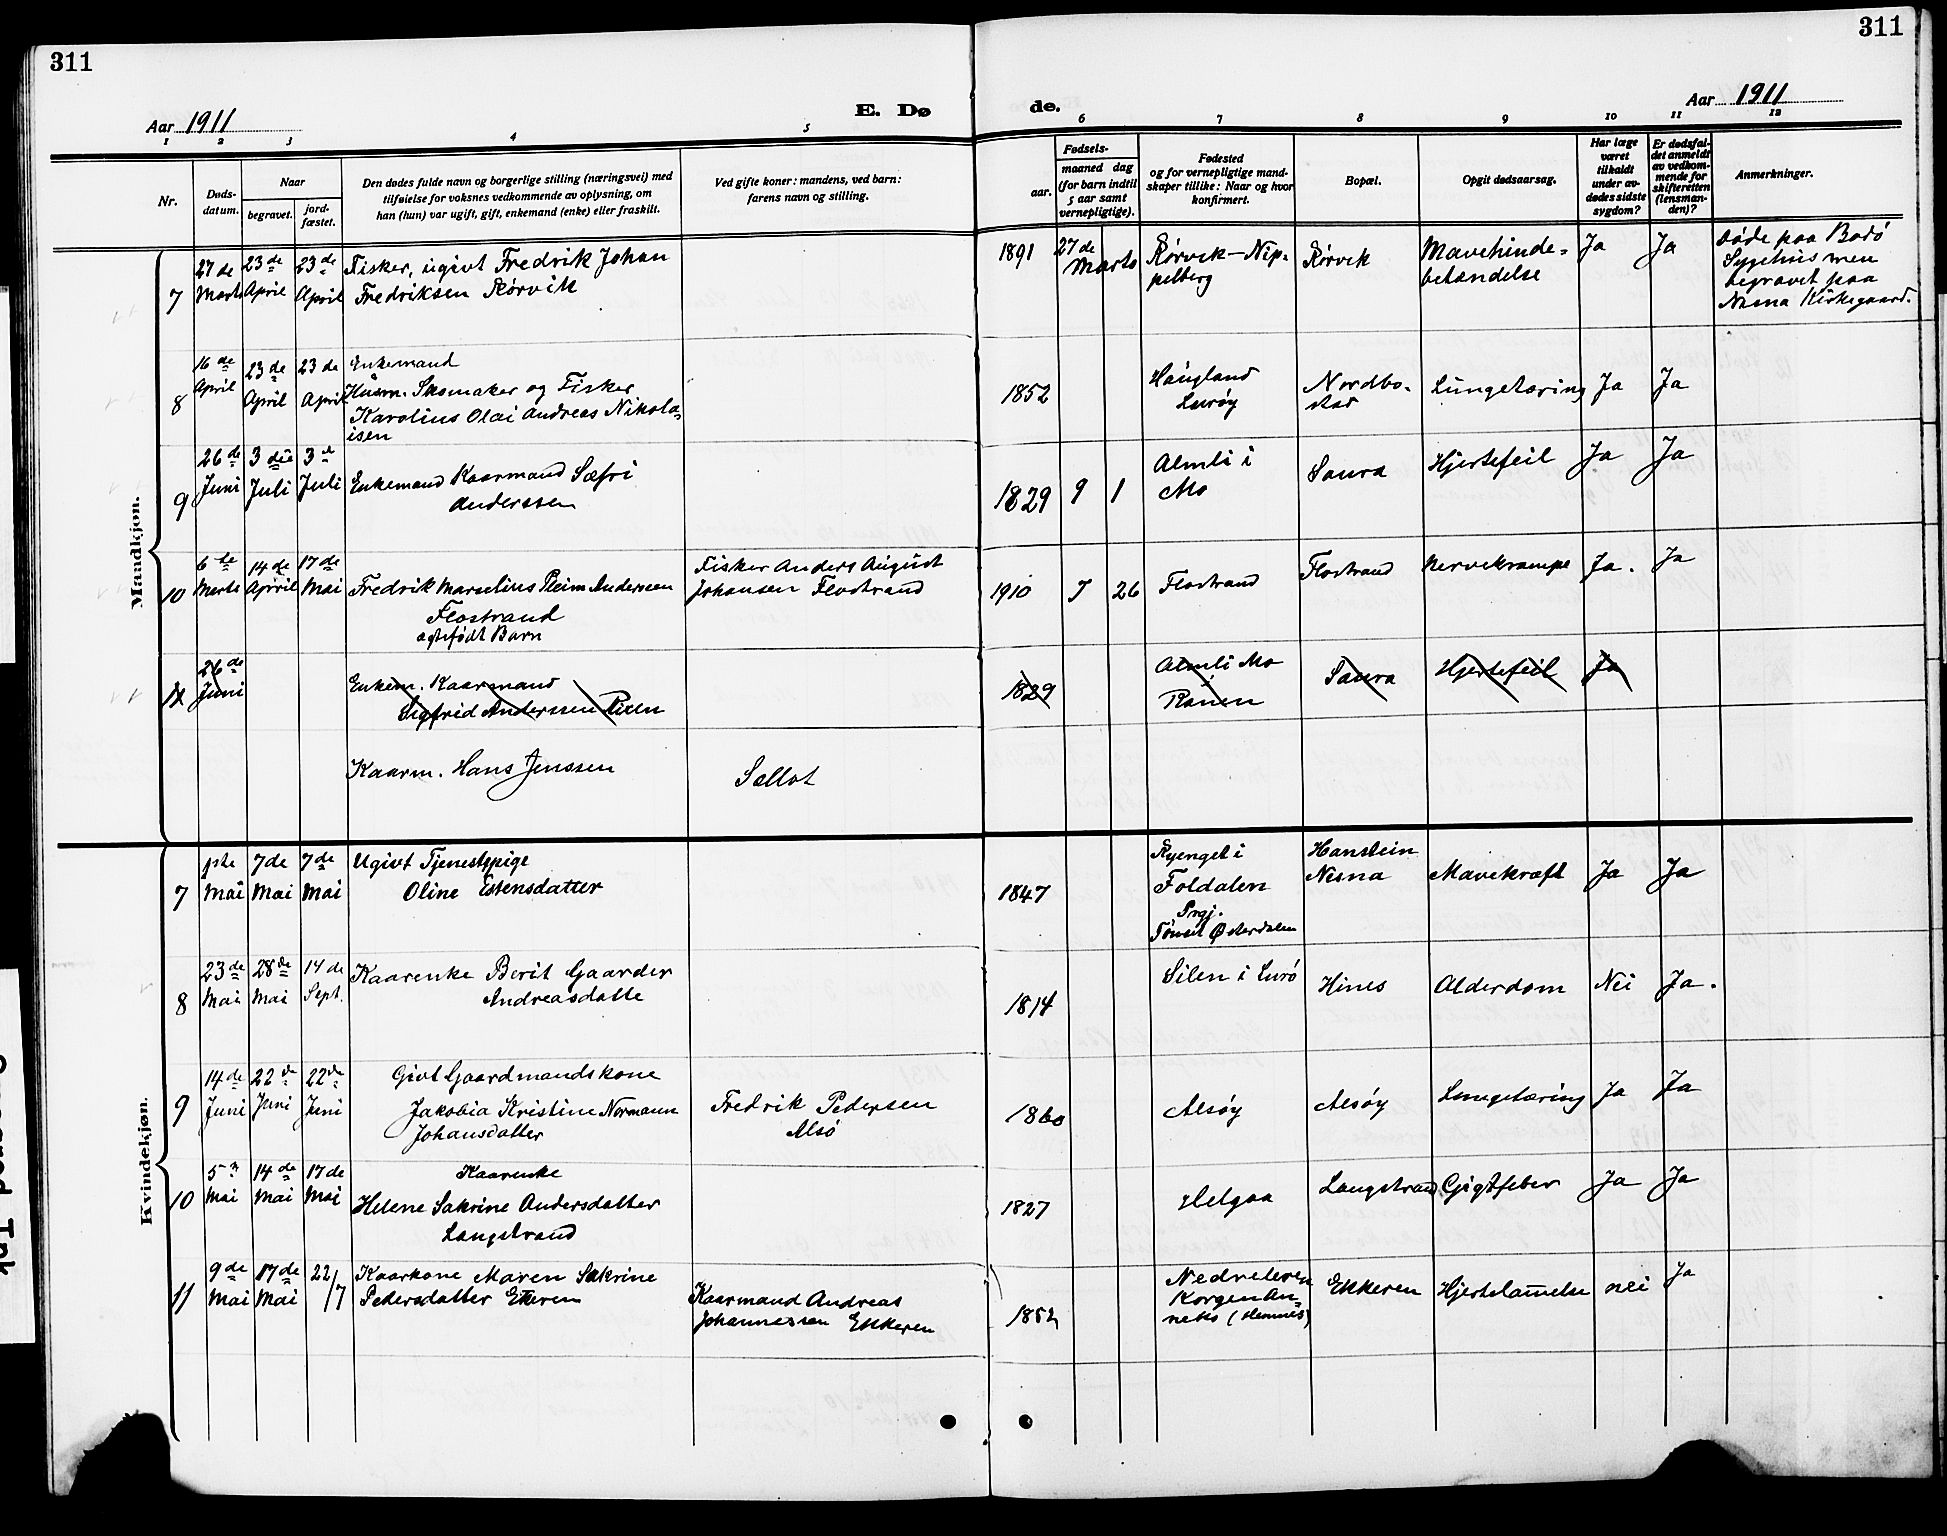 311
311
Aar 1911
E. Dø
de.
Aar 1911
1 2 3 4 5 6 7 8 9 10 11 12
Nr.
Døds-
datum.
Naar
begravet.
jord-
fæstet.
Den dødes fulde navn og borgerlige stilling (næringsvei) med
tilføielse for voksnes vedkommende av oplysning, om
han (hun) var ugift, gift, enkemand (enke) eller fraskilt.
Ved gifte koner: mandens, ved barn:
farens navn og stilling.
Fødsels-
aar.
maaned dag
(for barn indtil
5 aar samt
vernepligtige).
Fødested
og for vernepligtige mand-
skaper tillike: Naar og hvor
konfirmert.
Bopæl.
Opgit dødsaarsag.
Har læge
været
tilkaldt
under av-
dødes sidste
sygdom?
Er dødsfal-
det anmeldt
av vedkom-
mende for
skifteretten
(lensman-
den)?
Anmerkninger.
Mandkjøn.
7
27de
Marts
23de
April
23de
April
Fisker, ugivt Fredrik Johan
Fredriksen Rørvik
1891
27de
Marts
Rørvik - Nip-
pelberg
Rørvik
Mavehinde-
betændelse
Ja
Ja
Døde paa Bodø
Sygehus men
begravet paa
Nesna Kirkegaard.
8
16de
April
23de
April
23de
April
Enkemand
Husm. Skomaker og Fisker
Karolius Olai Andreas Nikola-
isen
1852
Haugland
Lurøy
Nordbo-
stad
Lungetæring
Ja
Ja
9
26de
Juni
3die
Juli
3
Juli
Enkemand Kaarmand Sæfri
Anderssen
1829
9
1
Almli i
Mo
Saura
Hjertefeil
Ja
Ja
10
6te
Marts
14de
April
17de
Mai
Fredrik Marselius Anderssen
Flostrand
ægtefødt Barn
Fisker Anders August
Johansen Flostrand
1910
26
Flostrand
Flostrand
Nervekrampe
Ja.
Ja
11
26de
Juni
Enkem. Kaarmand
Sigfrid Anderssen
1829
Almli Mo
i
Ranen
Saura
Hjertefeil
Ja
Kaarm. Hans Jenssen
Kvindekjøn.
7
1ste
Mai
7de
Mai
7de
Mai
Ugivt Tjenestepige
Oline Estensdatter
1847
Ryenget i
Foldalen
Prgj.
Tønset Østerdalen
Hanstein
Nesna
Mavekræft
Ja
Ja
8
23de
Mai
28de
Mai
14de
Sept.
Kaarenke Berit Gaarder
Andreasdatte
1814
Silen i Lurø
Hines
Alderdom
Nei
Ja.
9
14de
Juni
22de
Juni
22de
Juni
Givt Gaardmandskone
Jakobia Kristine Normann
Johansdatter
Fredrik Pedersen
Alsø
1860
Alsøy
Alsøy
Lungetæring
Ja
Ja
10
5
Mai
14de
Mai
17de
Mai
Kaarenke
Helene Sakrine Andersdatter
Langstrand
1827
Helgaa
Langstrand
Gigtfeber
Ja
Ja
11
9de
Mai
17de
Mai
22/7
Kaarkone Maren Sakrine
Pedersdatter Ekkeren
Kaarmand Andreas
Johannessen Ekkeren
1852
Nedreleren
Korgen An-
neks (Hemnes)
Ekkeren
Hjertelammelse
nei
Ja